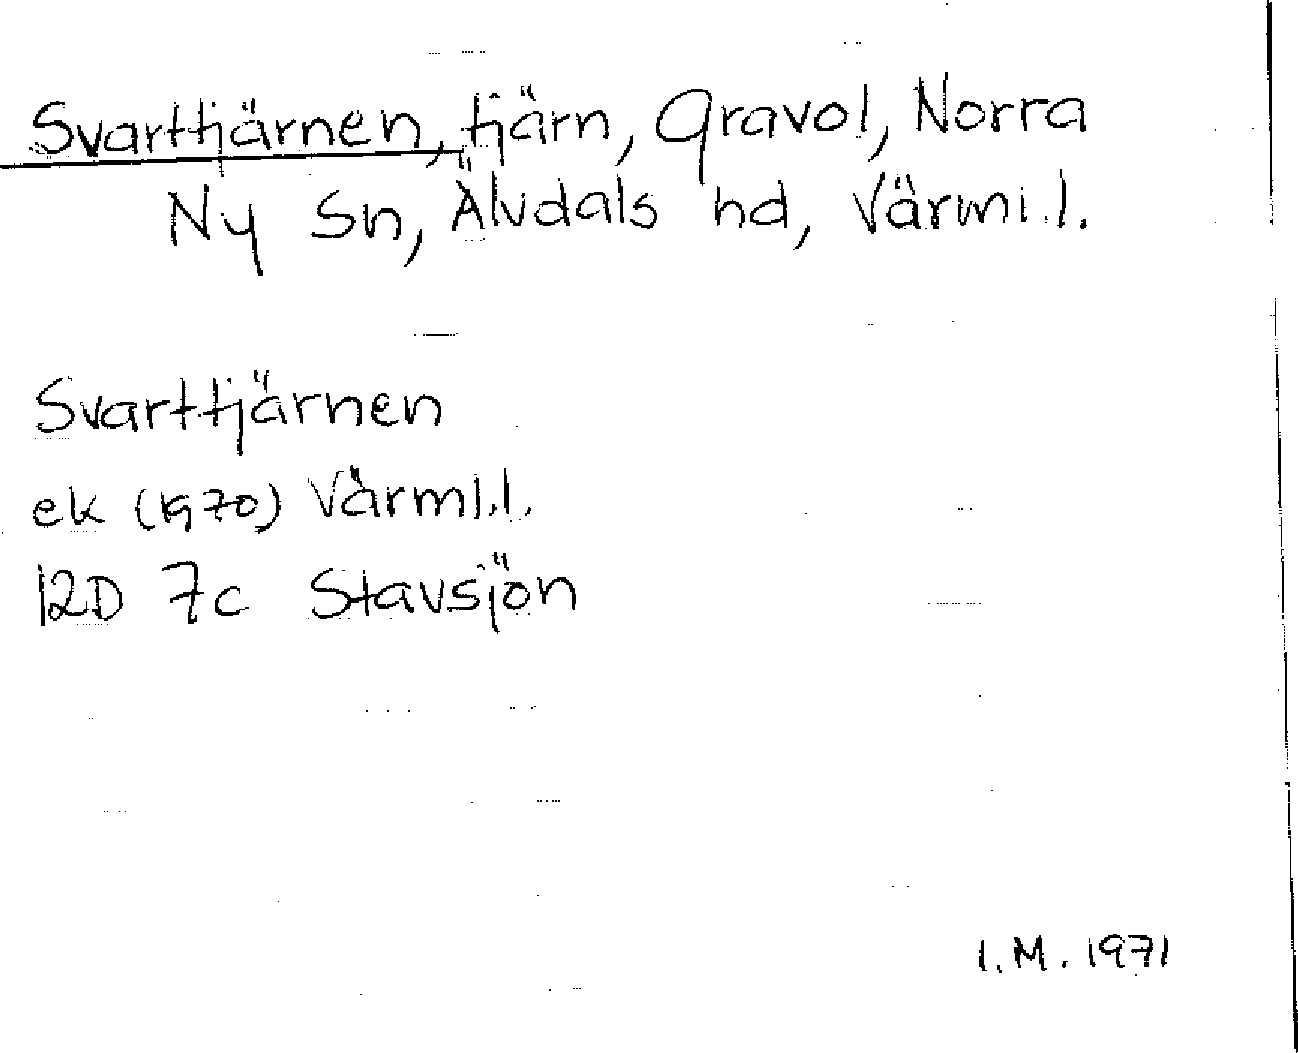 Svarttjärnen, tjärn, Gravol, Norra
Ny Sn, Älvdals hd, Värml.
Svarttjärnen
ek (1970) Värml.l.
12D 7c Stavsjön
I.M. 1971